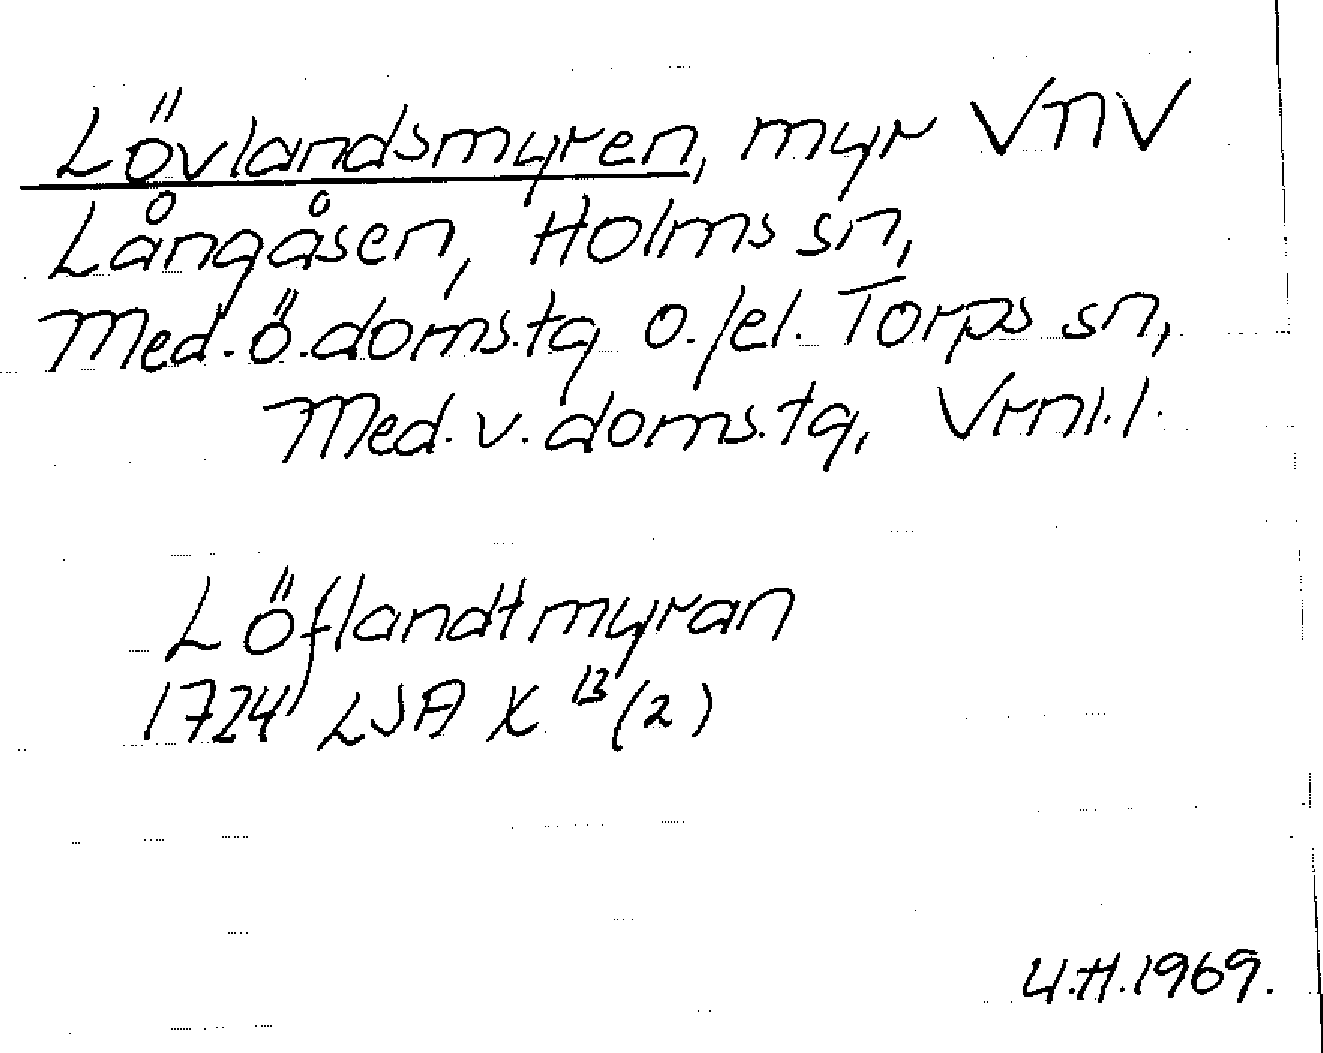 Lövlandsmyren, myr VNV
Långåsen, Holms sn,
Med. ö. doms.tg o./el. Torps sn,
Med. v. doms.tg, Vrnl.l.
Löflandtmyran
1724 LSA X 13 (2)
U.H. 1969.